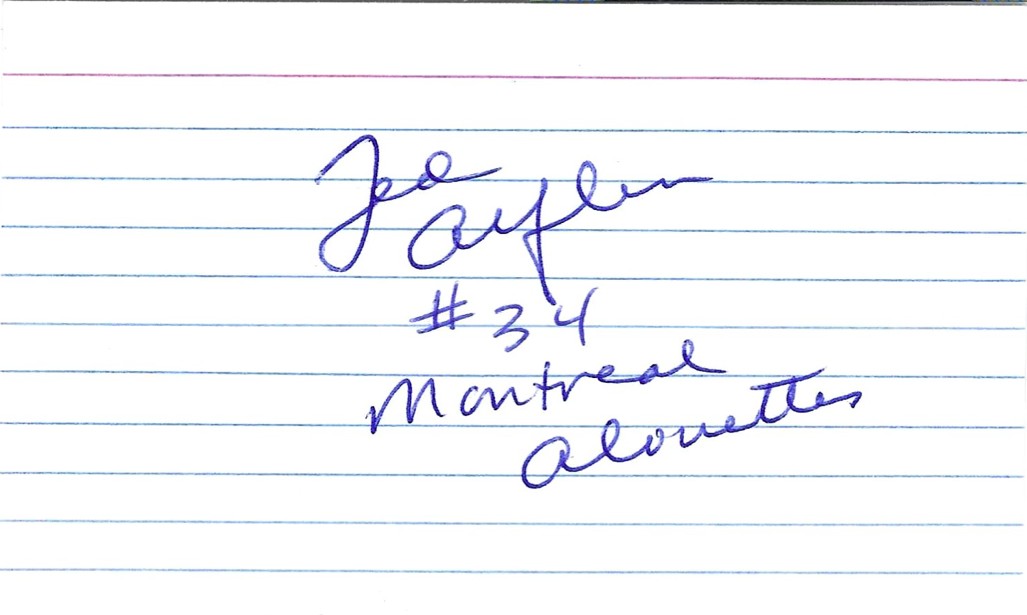 Ted
Alflen
#34
Montreal
Alouettes